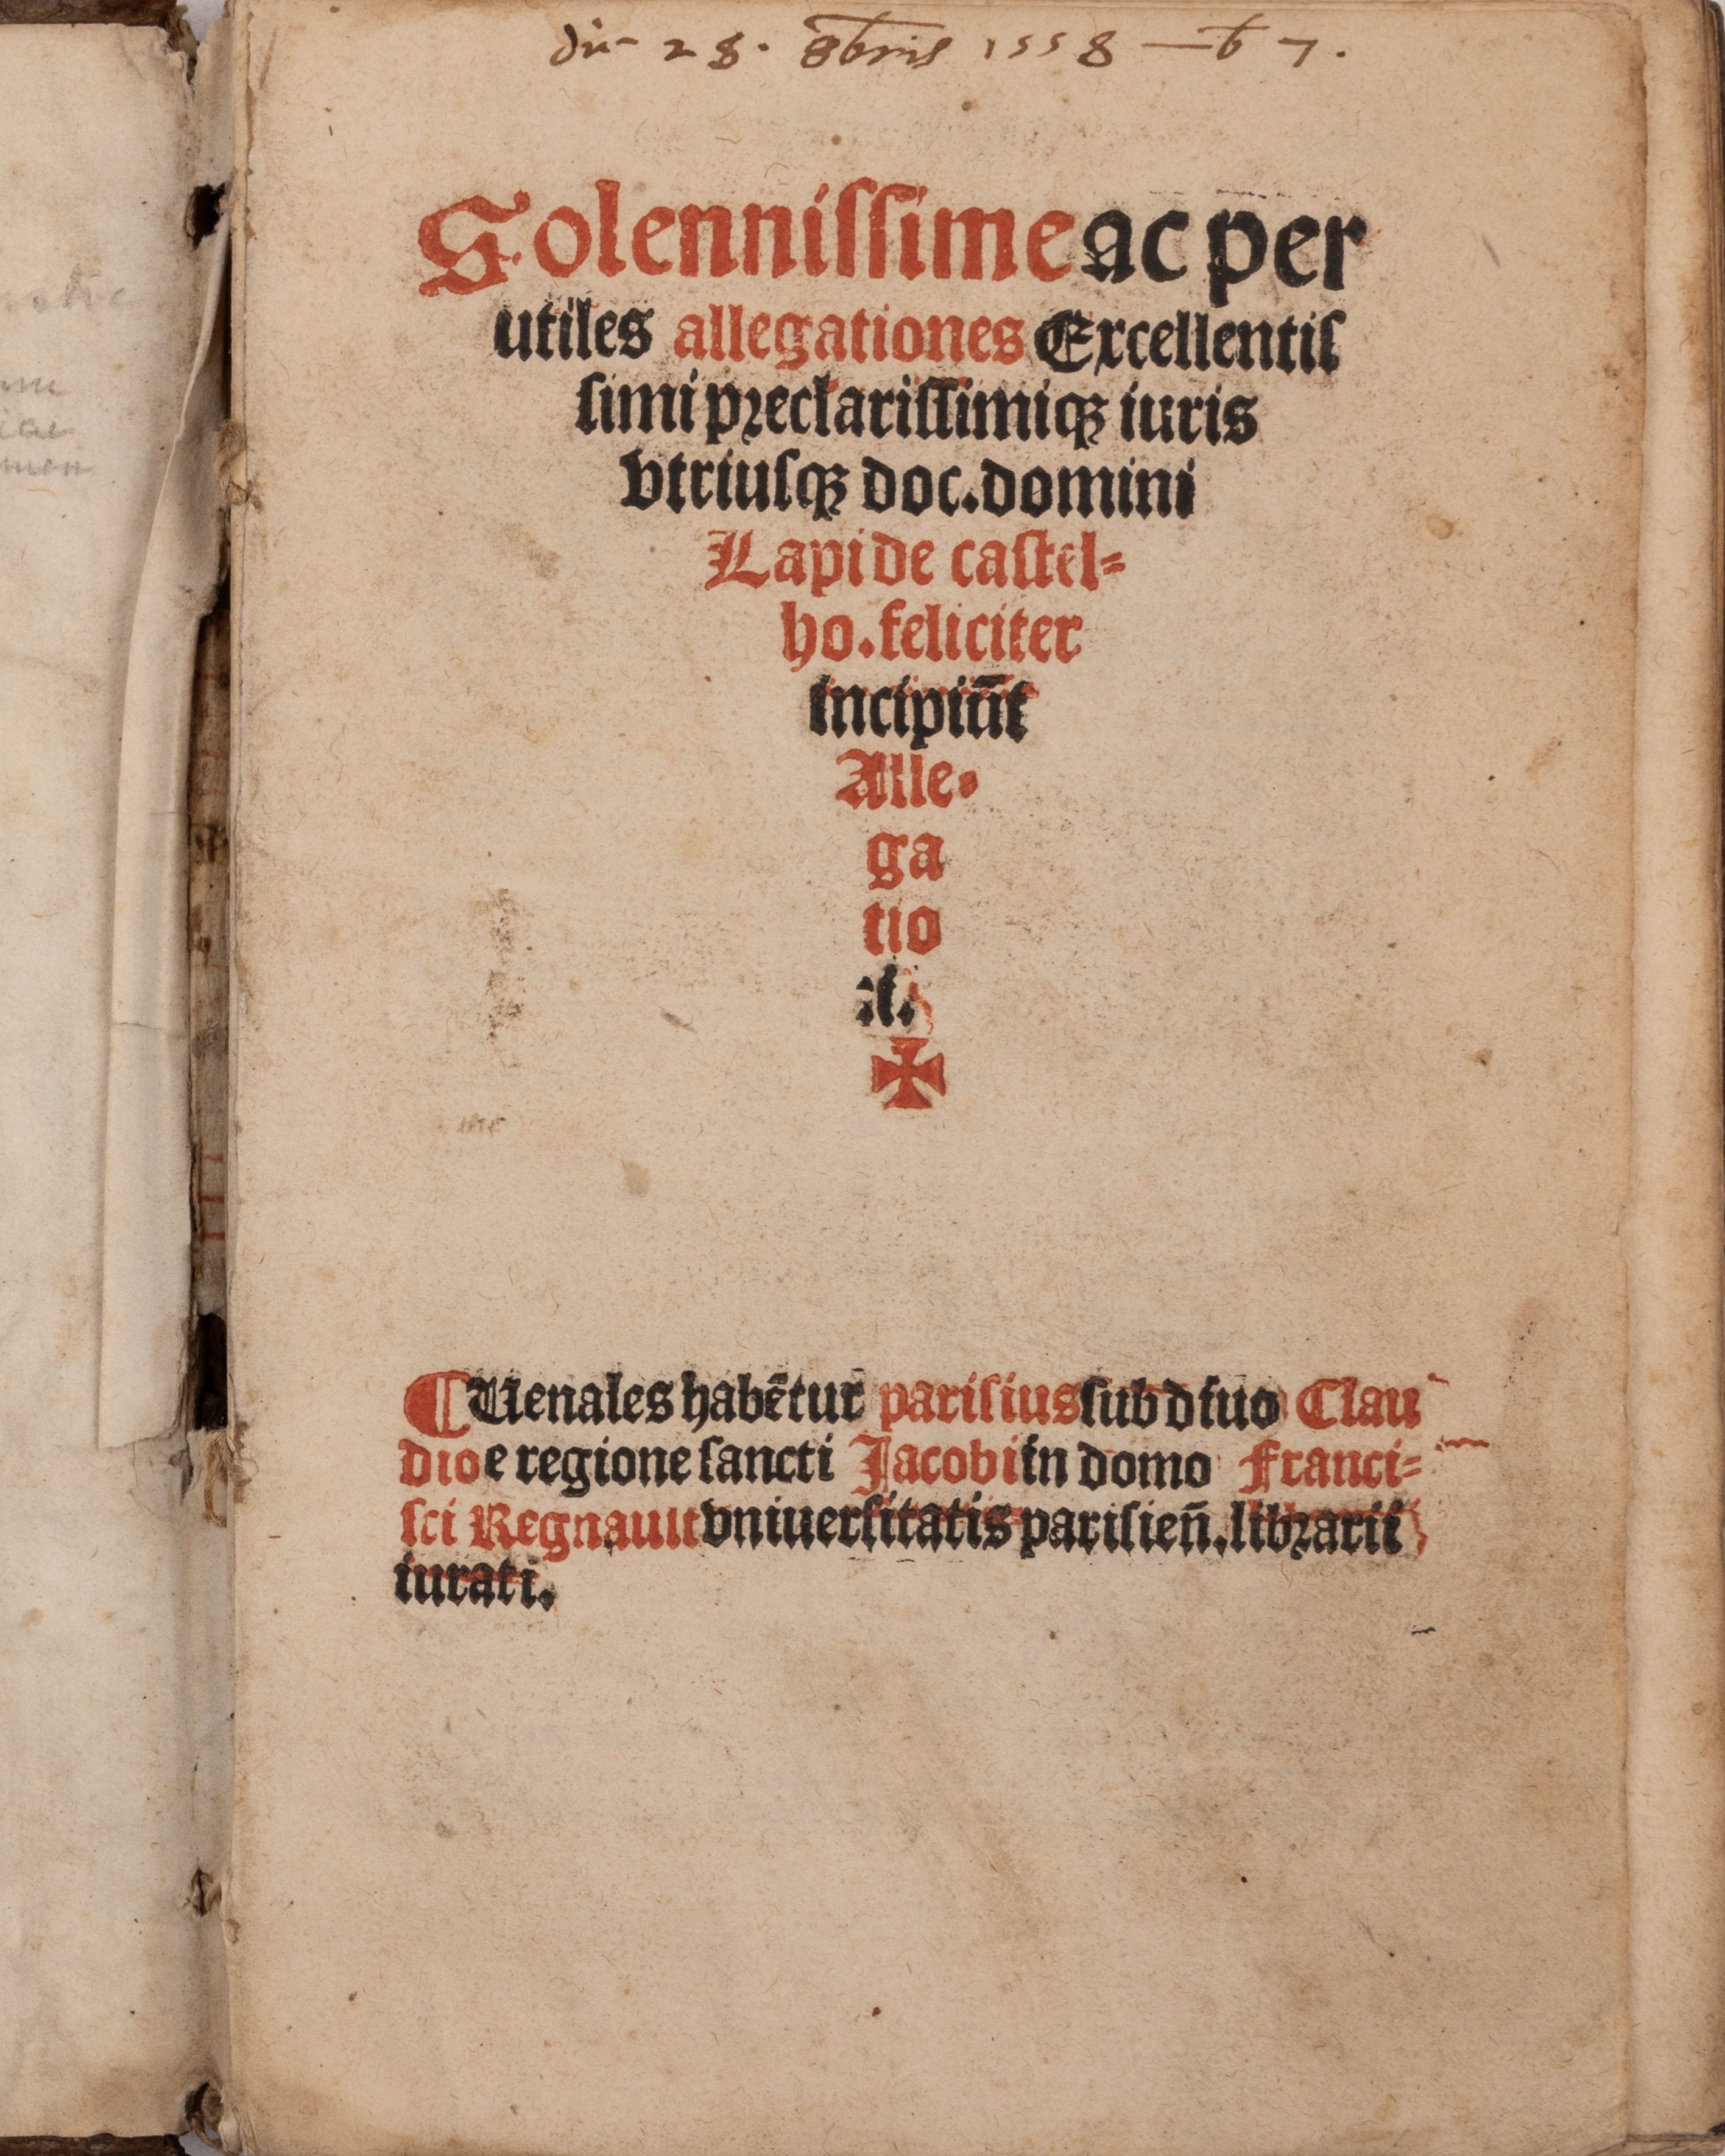 28. 8bris 1558 7.
Solennissime ac per
utiles allegationes Excellentis
simi preclarissimiqꝫ iuris
vtriusqꝫ doc. domini
Lapi de castel-
ho. feliciter
incipiūt
Alle.
ga
tio
✠
¶ Uenales habētur parisius sub d suo Clau
dio e regione sancti Jacobi in domo Franci-
sci Regnault vniuersitatis parisieñ. librarii
iurati.